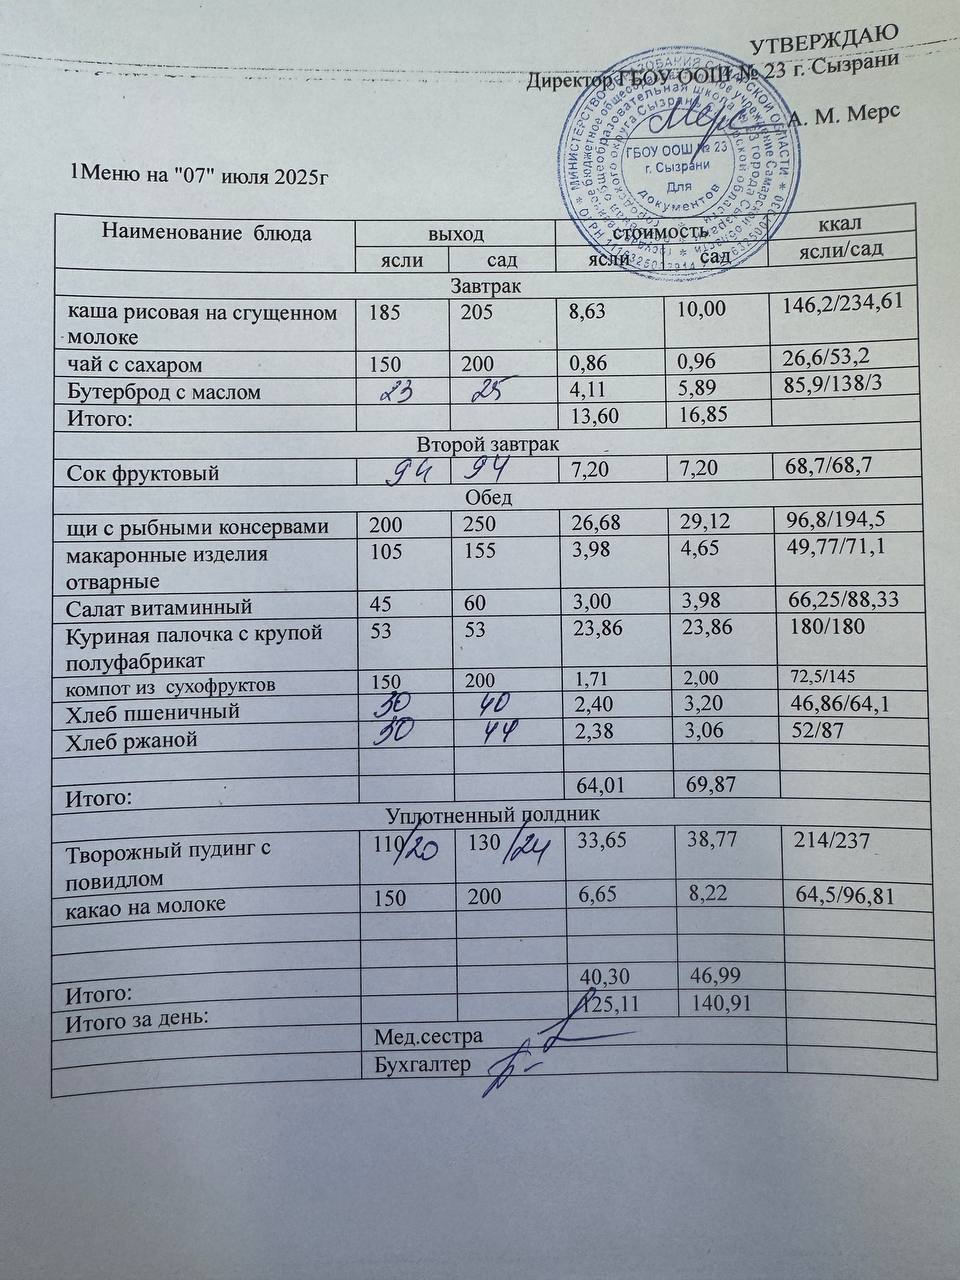 УТВЕРЖДАЮ
Директор ГБОУ ООШ № 23 г. Сызрани
А. М. Мерс
ГБОУ ООШ № 23
г. Сызрани
Для
документов
1Меню на "07" июля 2025г
Наименование блюда выход стоимость ккал
ясли сад ясли сад ясли/сад
Завтрак
каша рисовая на сгущенном 185 205 8,63 10,00 146,2/234,61
молоке
чай с сахаром 150 200 0,86 0,96 26,6/53,2
Бутерброд с маслом 23 25 4,11 5,89 85,9/138/3
Итого: 13,60 16,85
Второй завтрак
Сок фруктовый 94 94 7,20 7,20 68,7/68,7
Обед
щи с рыбными консервами 200 250 26,68 29,12 96,8/194,5
макаронные изделия 105 155 3,98 4,65 49,77/71,1
отварные
Салат витаминный 45 60 3,00 3,98 66,25/88,33
Куриная палочка с крупой 53 53 23,86 23,86 180/180
полуфабрикат
компот из сухофруктов 150 200 1,71 2,00 72,5/145
Хлеб пшеничный 30 40 2,40 3,20 46,86/64,1
Хлеб ржаной 30 44 2,38 3,06 52/87
Итого: 64,01 69,87
Уплотненный полдник
Творожный пудинг с 110/20 130/24 33,65 38,77 214/237
повидлом
какао на молоке 150 200 6,65 8,22 64,5/96,81
Итого: 40,30 46,99
Итого за день: 125,11 140,91
Мед.сестра
Бухгалтер